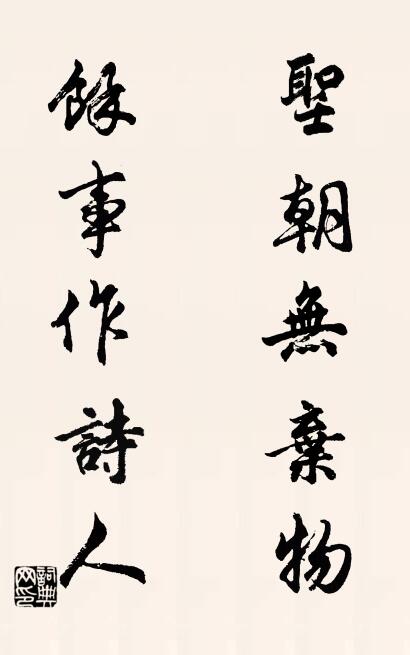 聖朝無棄物
餘事作詩人
詞典网印